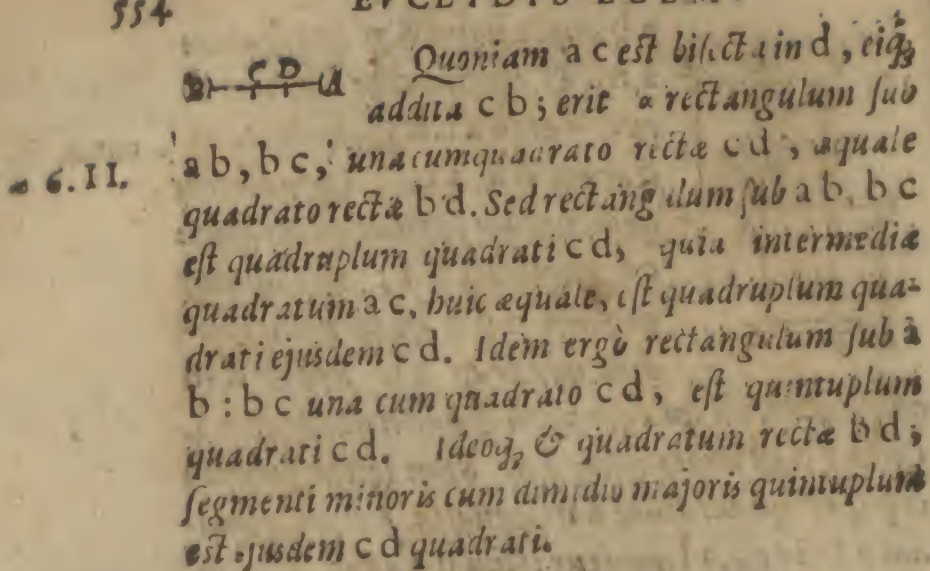 554
B C D A
Quoniam a c est bisecta in d, eiq;
addita c b; erit a rectangulum sub
a 6. II. a b, b c, una cum quadrato rectæ c d, æquale
quadrato rectæ b d. Sed rectangulum sub a b, b c
est quadruplum quadrati c d, quia intermediæ
quadratum a c, huic æquale, est quadruplum qua-
drati ejusdem c d. Idem ergò rectangulum sub a
b : b c una cum quadrato c d, est quintuplum
quadrati c d. Ideoq; & quadratum rectæ b d;
segmenti minoris cum dimidio majoris quintuplum
est ejusdem c d quadrati.